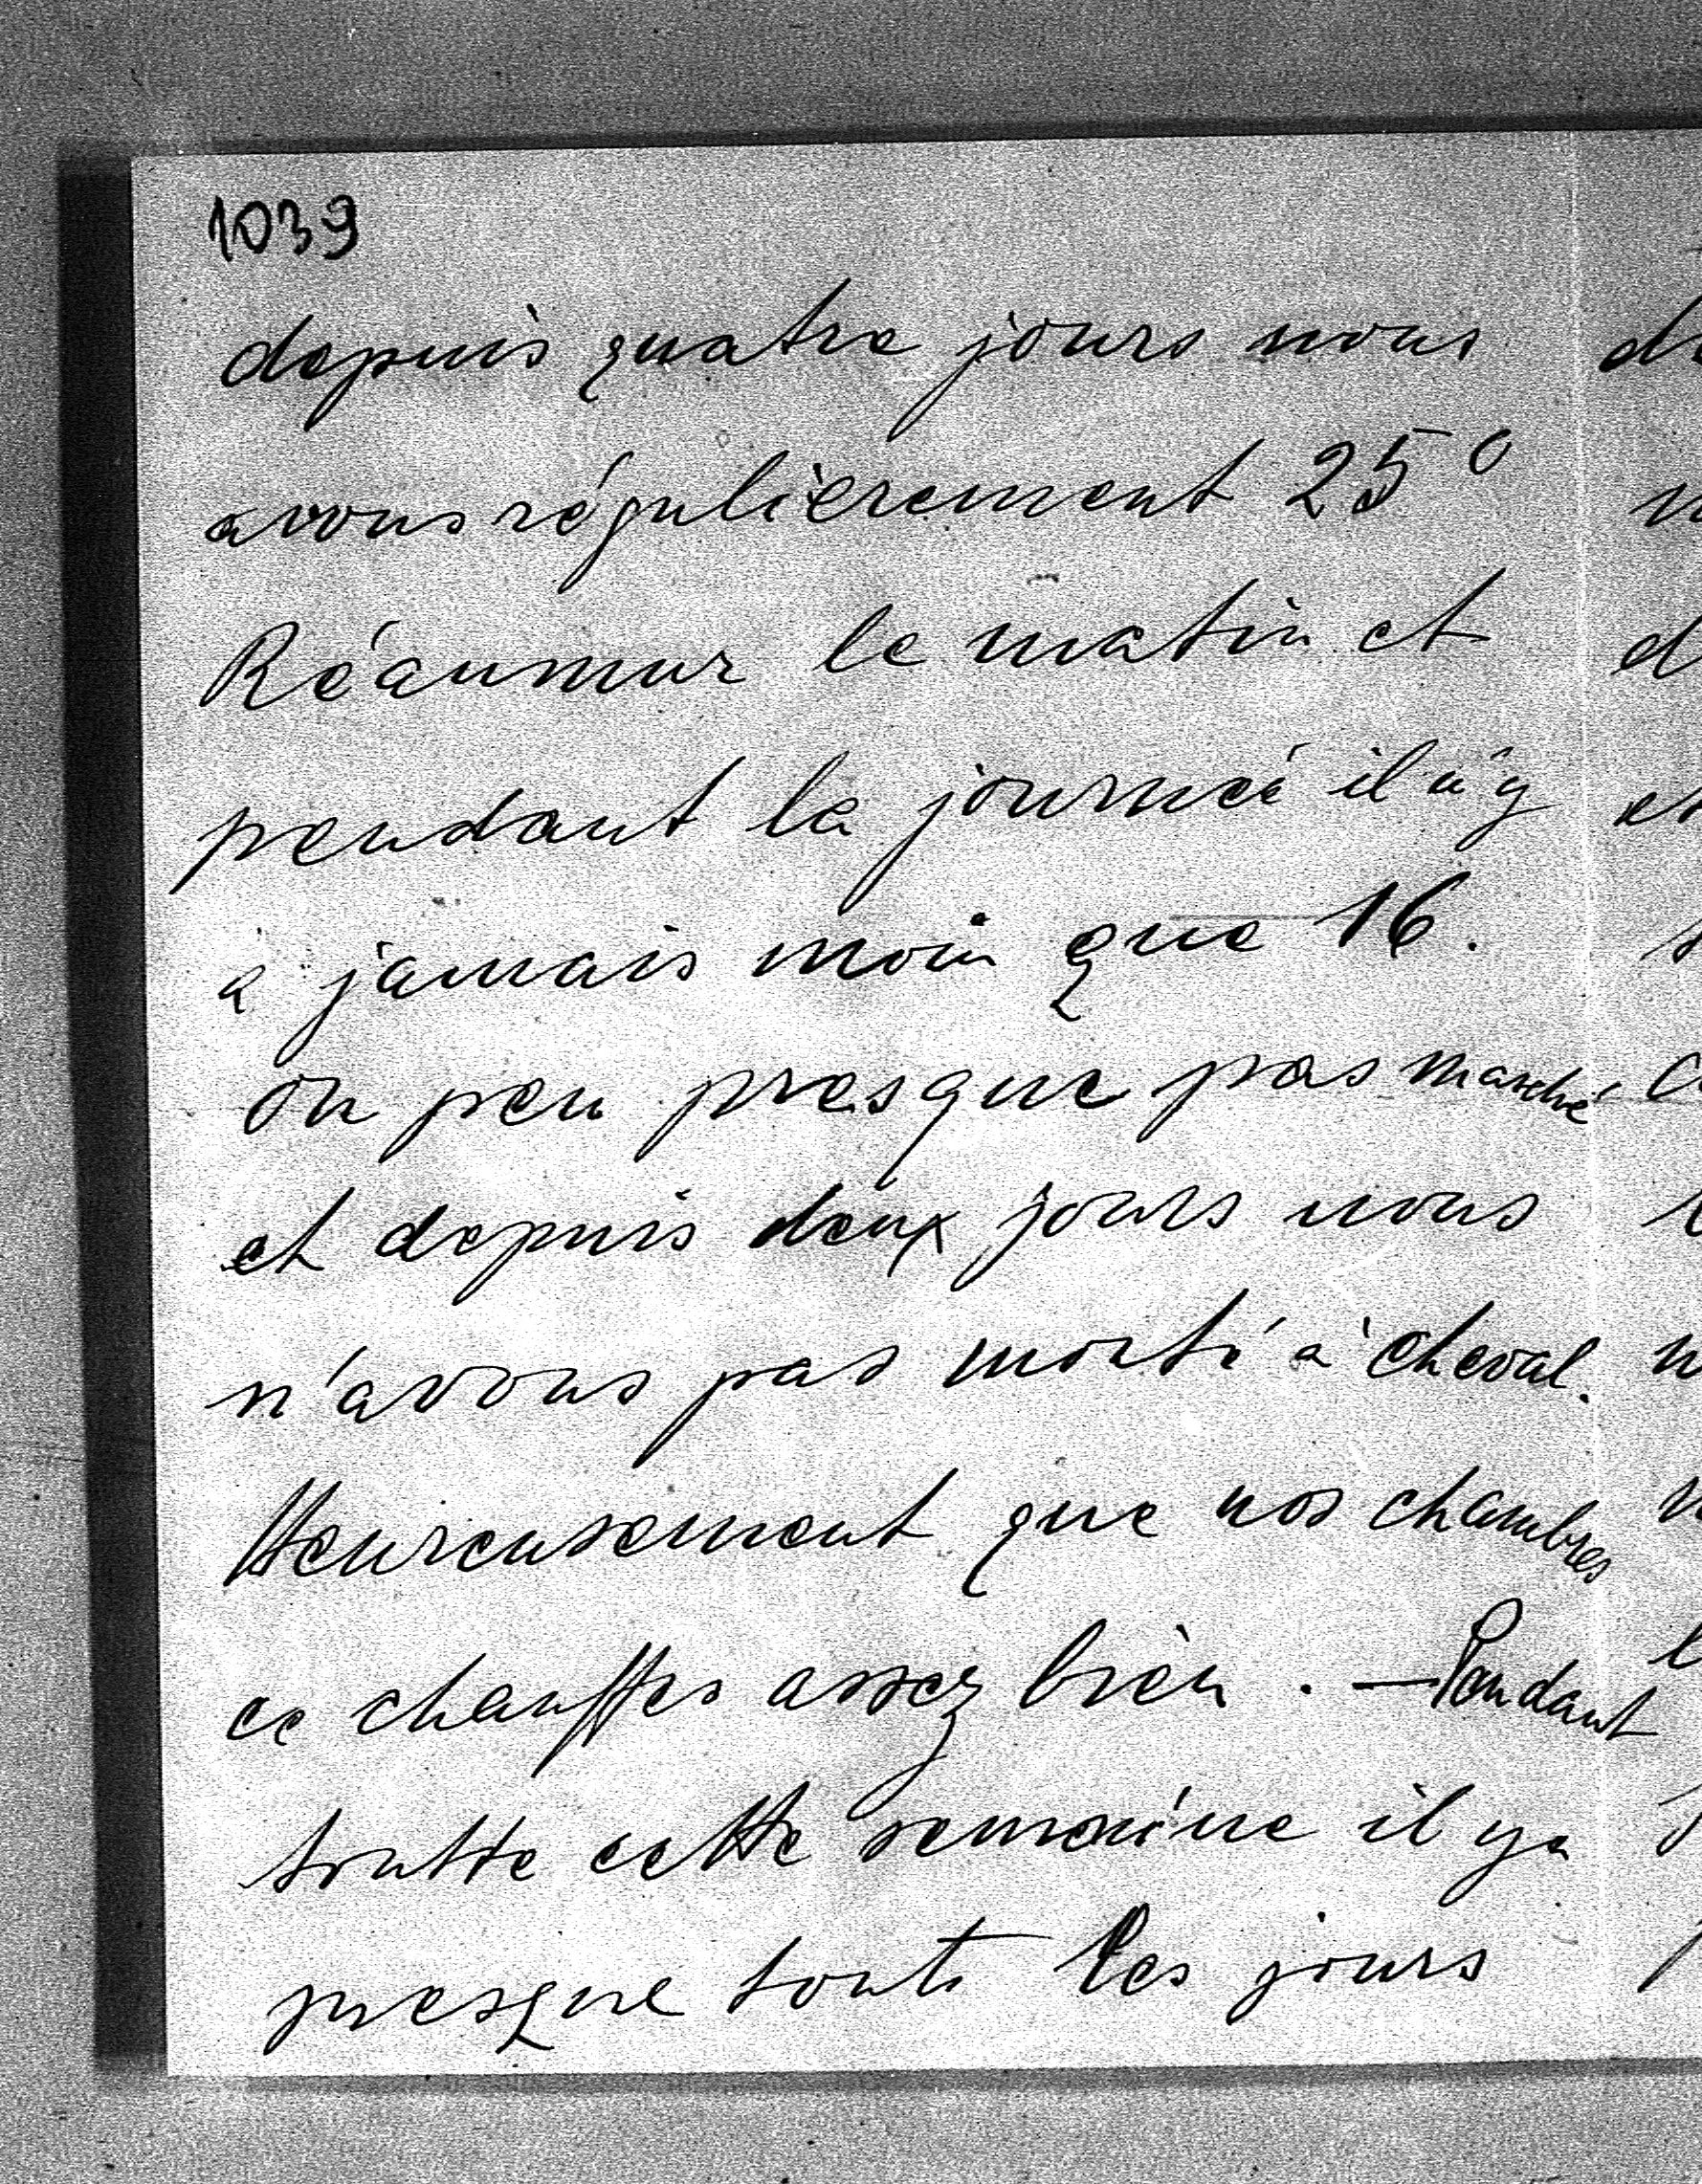 1039
depuis quatre jours nous
avons régulièrement 25°
Réaumur le matin et
pendant la journeé il n'y
a jamais moin que 16.
on peu presque pas marché
et depuis deux jours nous
n'avons pas monté à cheval.
Heureusement que nos chambres
ce chauffes assez bien. — Pendant
toutte cette semaine il ya
presque touts les jours